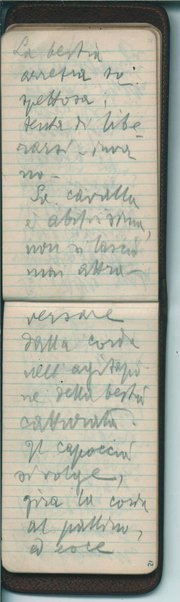 La bestia
arretra so-
spettosa,
tenta di libe-
rarsi - inva-
no -
La cavalla
è abilissima,
non si lascia
mai attra-
versare
dalla corda
nell'agitazio
ne della bestia
catturata.
Il capoccia
si volge,
gira la corda
al pallino,
ed ecco